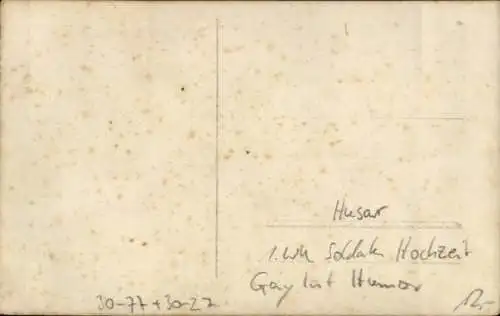 Husar
1. WK Soldaten Hochzeit
Gay Int Humor
30-77 + 30-27
12,-